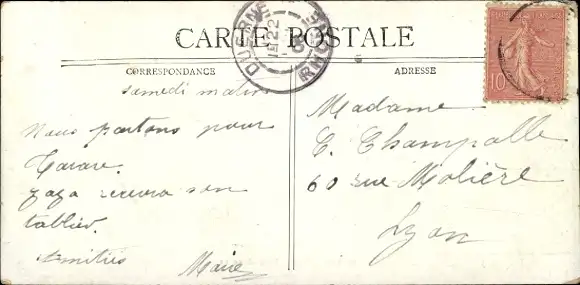 CARTE POSTALE
CORRESPONDANCE
samedi matin
Nous partons pour
Tarare.
Gaga recevra son
tablier.
Amitiés
Marie
ADRESSE
Madame
C. Champalle
60 rue Molière
Lyon
DUERNE
22
RHONE
10